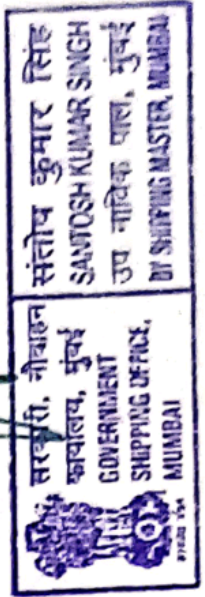 सरकारी, नौवाहन
कार्यालय, मुंबई
GOVERNMENT
SHIPPING OFFICE,
MUMBAI
संतोष कुमार सिंह
SANTOSH KUMAR SINGH
उप नाविक पाल, मुंबई
DY SHIPPING MASTER, MUMBAI